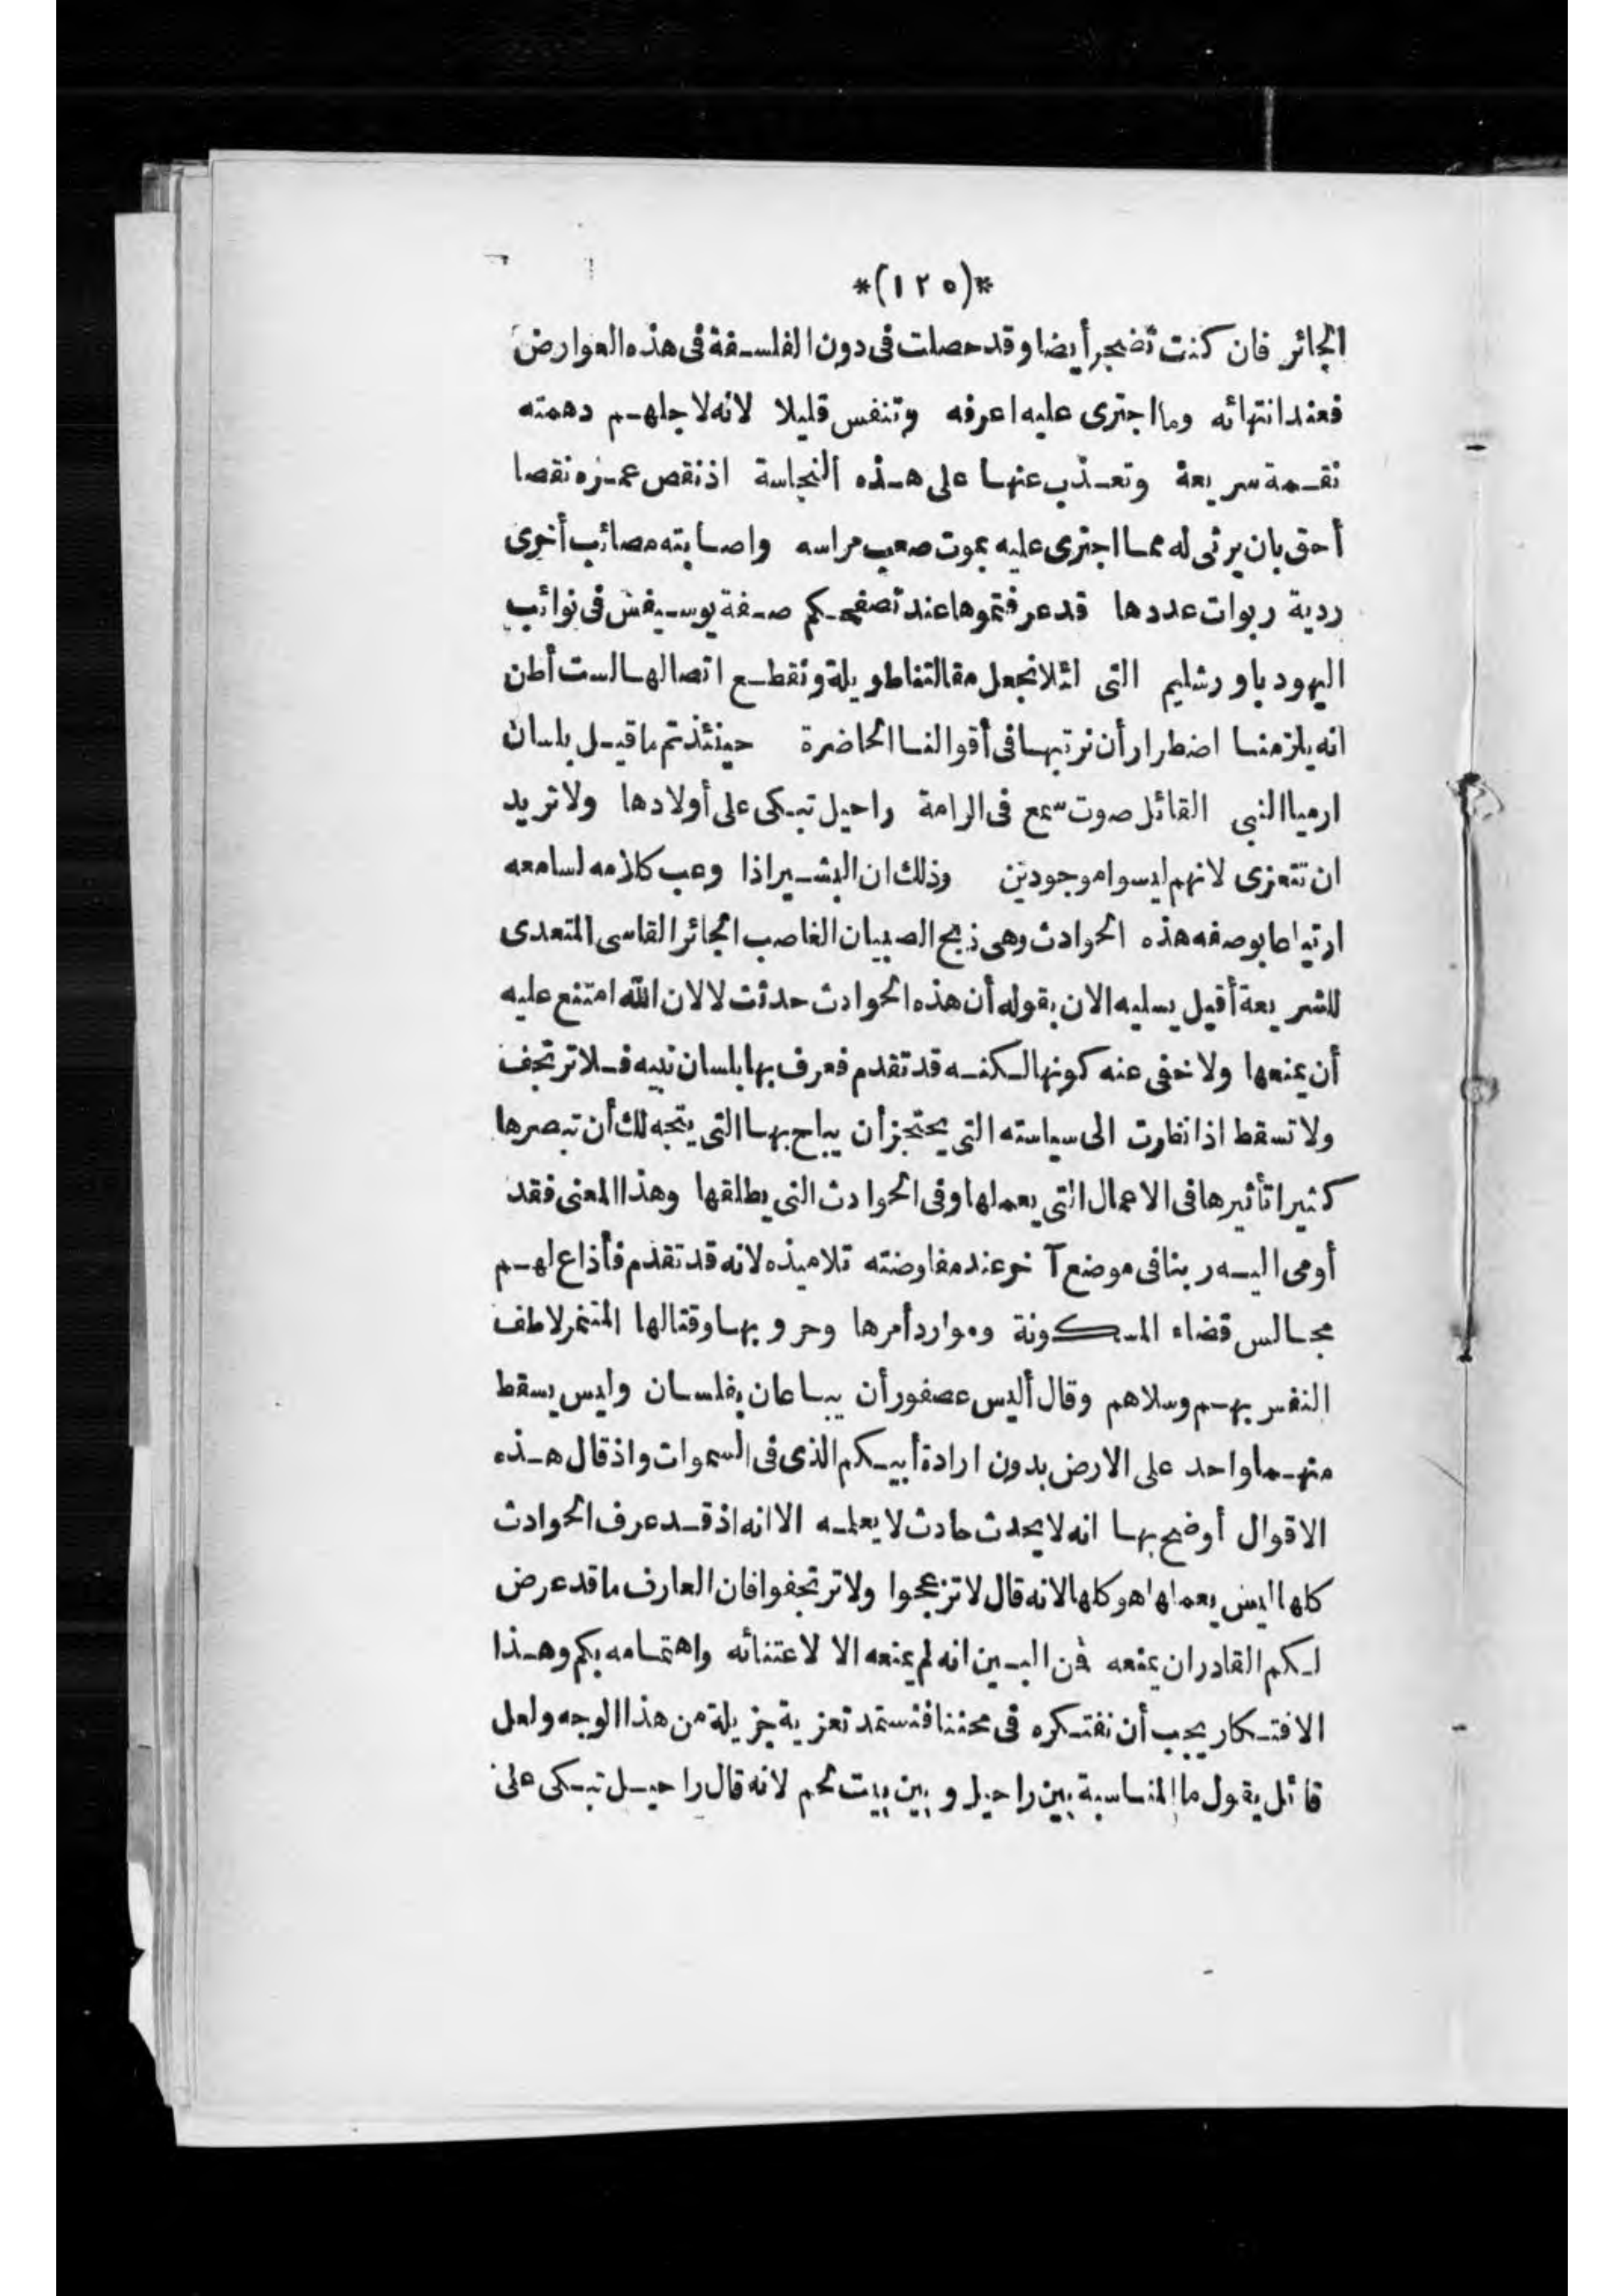 *(١٢٥)*
الجائر فان كنت تضجر أيضا وقد حصلت في دون الفلسفة في هذه العوارض
فعند انتهائه وما اجترى عليه اعرفه وتنفس قليلا لانه لاجلهم دهمته
نقمة سريعة وتعذب عنها على هذه النجاسة اذ نقص عمره نقصا
أحق بان يرثى له مما اجترى عليه بموت صعب مراسه واصابته مصائب أخرى
ردية ربوات عددها قد عرفتموها عند تصفحكم صفة يوسيفس في نوائب
اليهود باورشليم التى لئلا نجعل مقالتنا طويلة ونقطع اتصالها لست أظن
انه يلزمنا اضطرار أن نرتبها في أقوالنا الحاضرة حينئذ تم ما قيل بلسان
ارميا النبي القائل صوت سمع فى الرامة راحيل تبكى على أولادها ولا تريد
ان تتعزى لانهم ليسوا موجودين وذلك ان البشير اذا وعب كلامه لسامعه
ارتياعا بوصفه هذه الحوادث وهى ذبح الصبيان الغاصب الجائر القاسى المتعدى
للشريعة أقبل يسليه الان بقوله أن هذه الحوادث حدثت لا لان الله امتنع عليه
أن يمنعها ولا خفى عنه كونها لكنه قد تقدم فعرف بها بلسان نبيه فلا ترتجف
ولا تسقط اذا نظرت الى سياسته التى يحتجز أن يباح بها التى يتجه لك أن تبصرها
كثيرا تأثيرها فى الاعمال التى يعملها وفى الحوادث التى يطلقها وهذا المعنى فقد
أومى اليه ربنا فى موضع آخر عند مفاوضته تلاميذه لانه قد تقدم فأذاع لهم
مجالس قضاء المسكونة وموارد أمرها وحروبها وقتالها المتنمر لاطف
النفس بهم وسلاهم وقال أليس عصفور أن يباعان بفلسان وليس يسقط
منهما واحد على الارض بدون ارادة أبيكم الذى فى السموات واذ قال هذه
الاقوال أوضح بها انه لا يحدث حادث لا يعلمه الا انه اذ قد عرف الحوادث
كلها ليس يعملها هو كلها لانه قال لا تزعجوا ولا ترتجفوا فان العارف ما قد عرض
لكم القادر ان يمنعه فن البين انه لم يمنعه الا لاعتنائه واهتمامه بكم وهذا
الافتكار يجب أن نفتكره فى محننا فنستمد تعزية جزيلة من هذا الوجه ولعل
قائل يقول ما المناسبة بين راحيل وبين بيت لحم لانه قال راحيل تبكى على